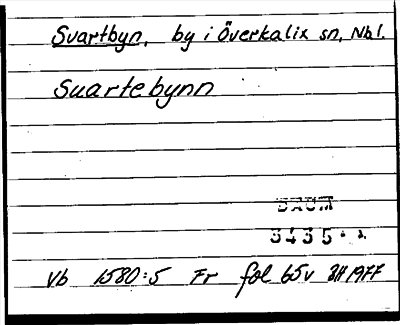 Svartbyn, by i Överkalix sn, Nbl.
Suartebynn
3435
Vb 1580:5 Fr fol 65v BH 1977